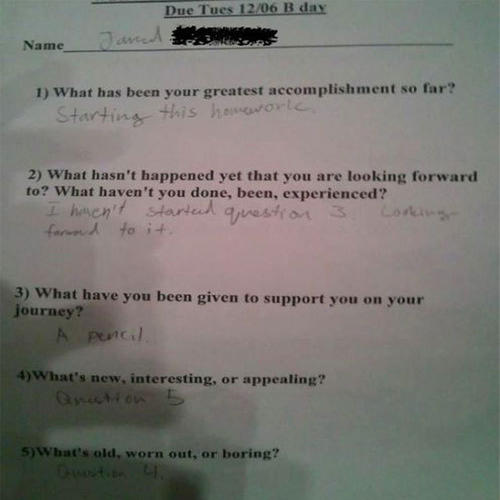 Due Tues 12/06 B day
Name Jared
1) What has been your greatest accomplishment so far?
Starting this homework.
2) What hasn't happened yet that you are looking forward
to? What haven't you done, been, experienced?
I haven't started question 3. Looking
forward to it.
3) What have you been given to support you on your
journey?
A pencil.
4)What's new, interesting, or appealing?
Question 5
5)What's old, worn out, or boring?
Question 4.